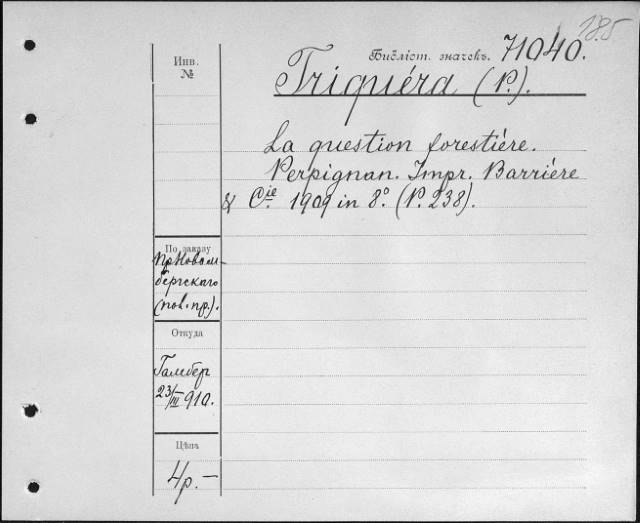 185
Инв.
№
Библіот. значекъ. 71040.
Triquéra (P.).
La question forestière.
Perpignan. Impr. Barriére
& Cie 1909 in 8º. (P. 238).
По заказу
Пр. Новом-
бергскаго
(пов. пр.).
Откуда
Гамбер
23/III 910.
Цѣна
4р. –